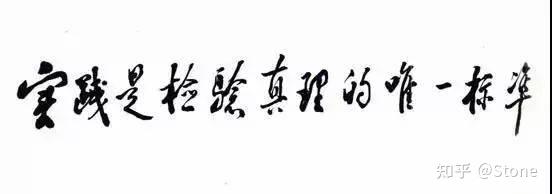 实践是检验真理的唯一标准
知乎 @Stone